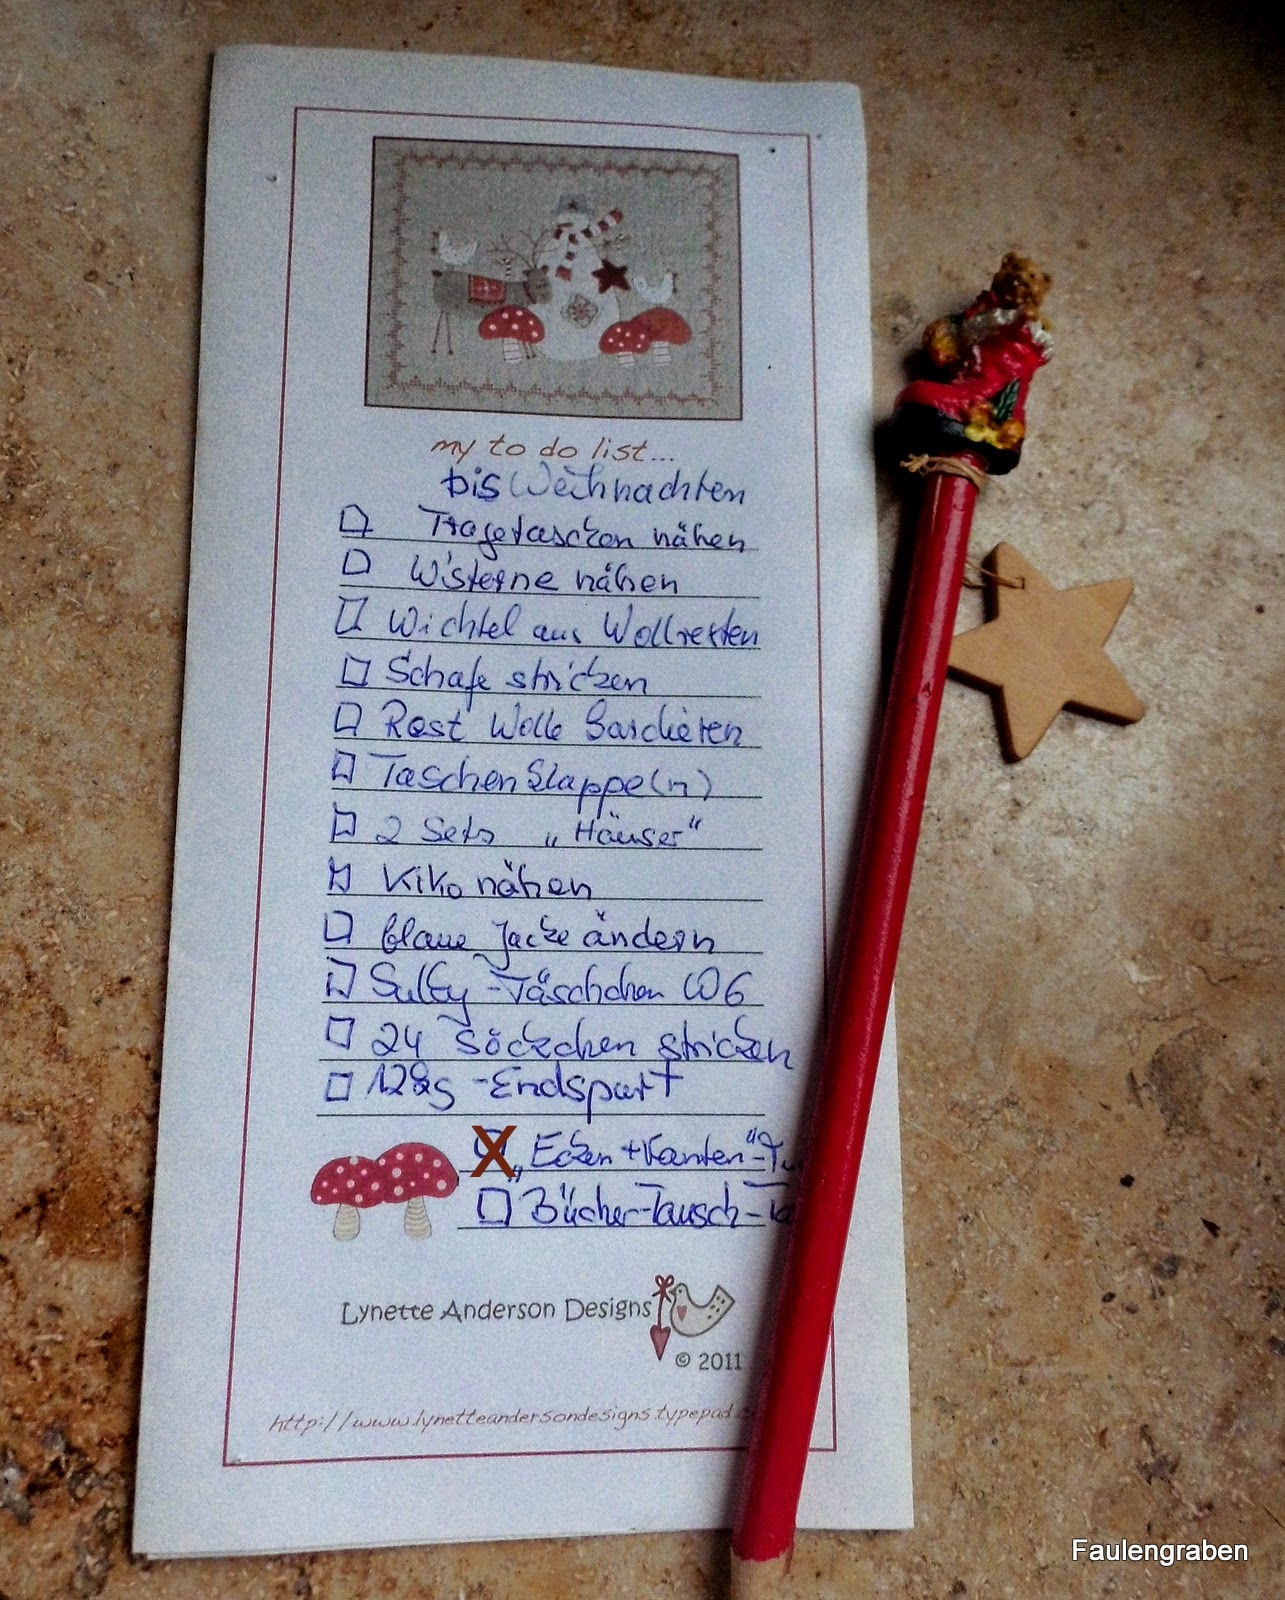 my to do list...
bis Weihnachten
Tragetaschen nähen
nähen
Wichtel aus Wollresten
Schafe stricken
Rest Wolle
Taschenklappe(n)
2 Sets „Häuser“
Kiko nähen
blaue Jacke ändern
Sulky-Täschchen W6
24 Söckchen stricken
-Endspurt
X „Ecken + Kanten“-Tu
Bücher-Tausch-Ta
Lynette Anderson Designs
© 2011
http://www.lynetteandersondesigns.typepad.c
Faulengraben